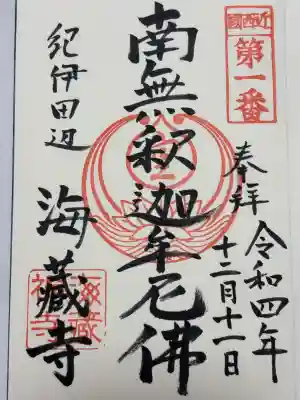 西国
第一番
奉拝
令和四年
十二月十一日
南無釈迦牟尼佛
紀伊田辺
海蔵寺
海蔵
禅寺